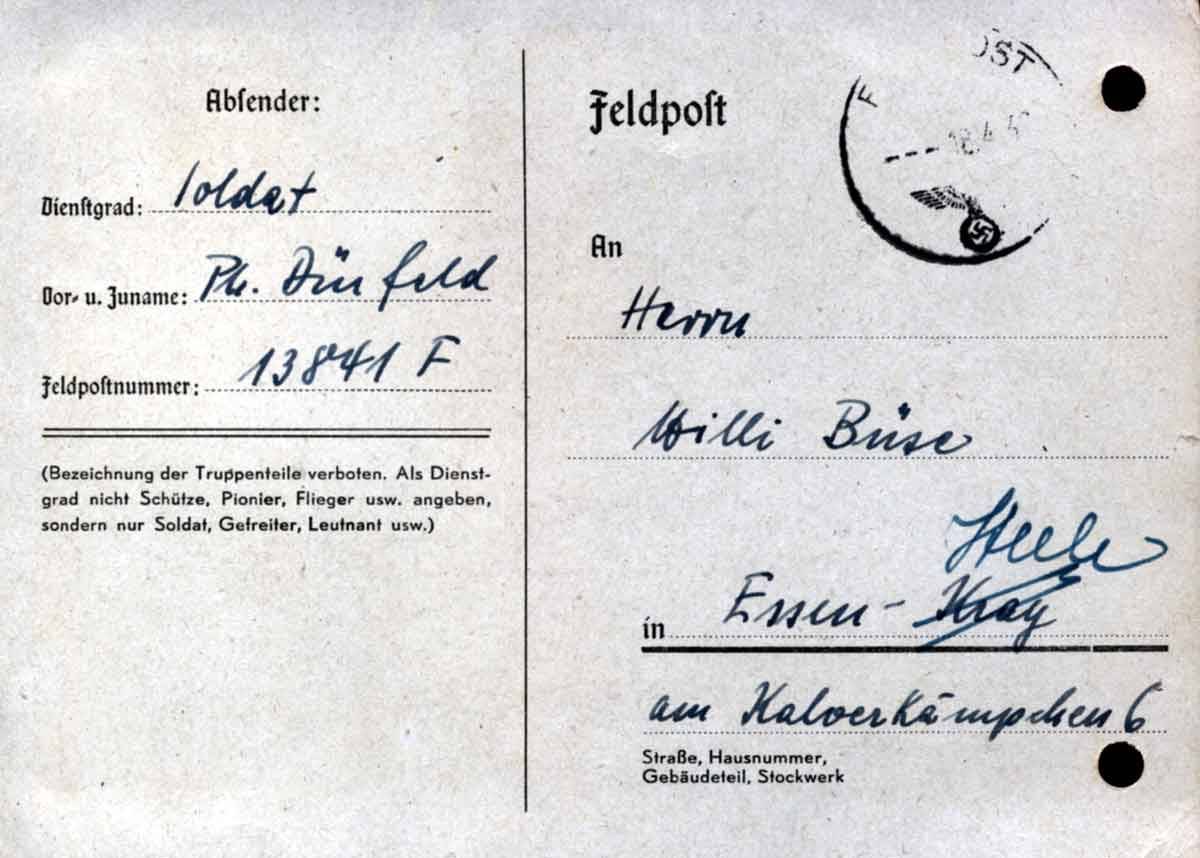 Absender:
Dienstgrad: Soldat
Vor- u. Zuname: Ph. Dünfeld
Feldpostnummer: 13841 F
(Bezeichnung der Truppenteile verboten. Als Dienst-
grad nicht Schütze, Pionier, Flieger usw. angeben,
sondern nur Soldat, Gefreiter, Leutnant usw.)
Feldpost
18.4.4
An
Herrn
Willi Büse
Steele
in Essen-Kray
am Kalverkämpchen 6
Straße, Hausnummer,
Gebäudeteil, Stockwerk